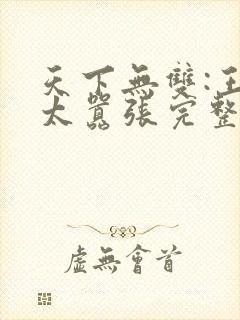 天下無雙:王
太囂張完整
虛無會首